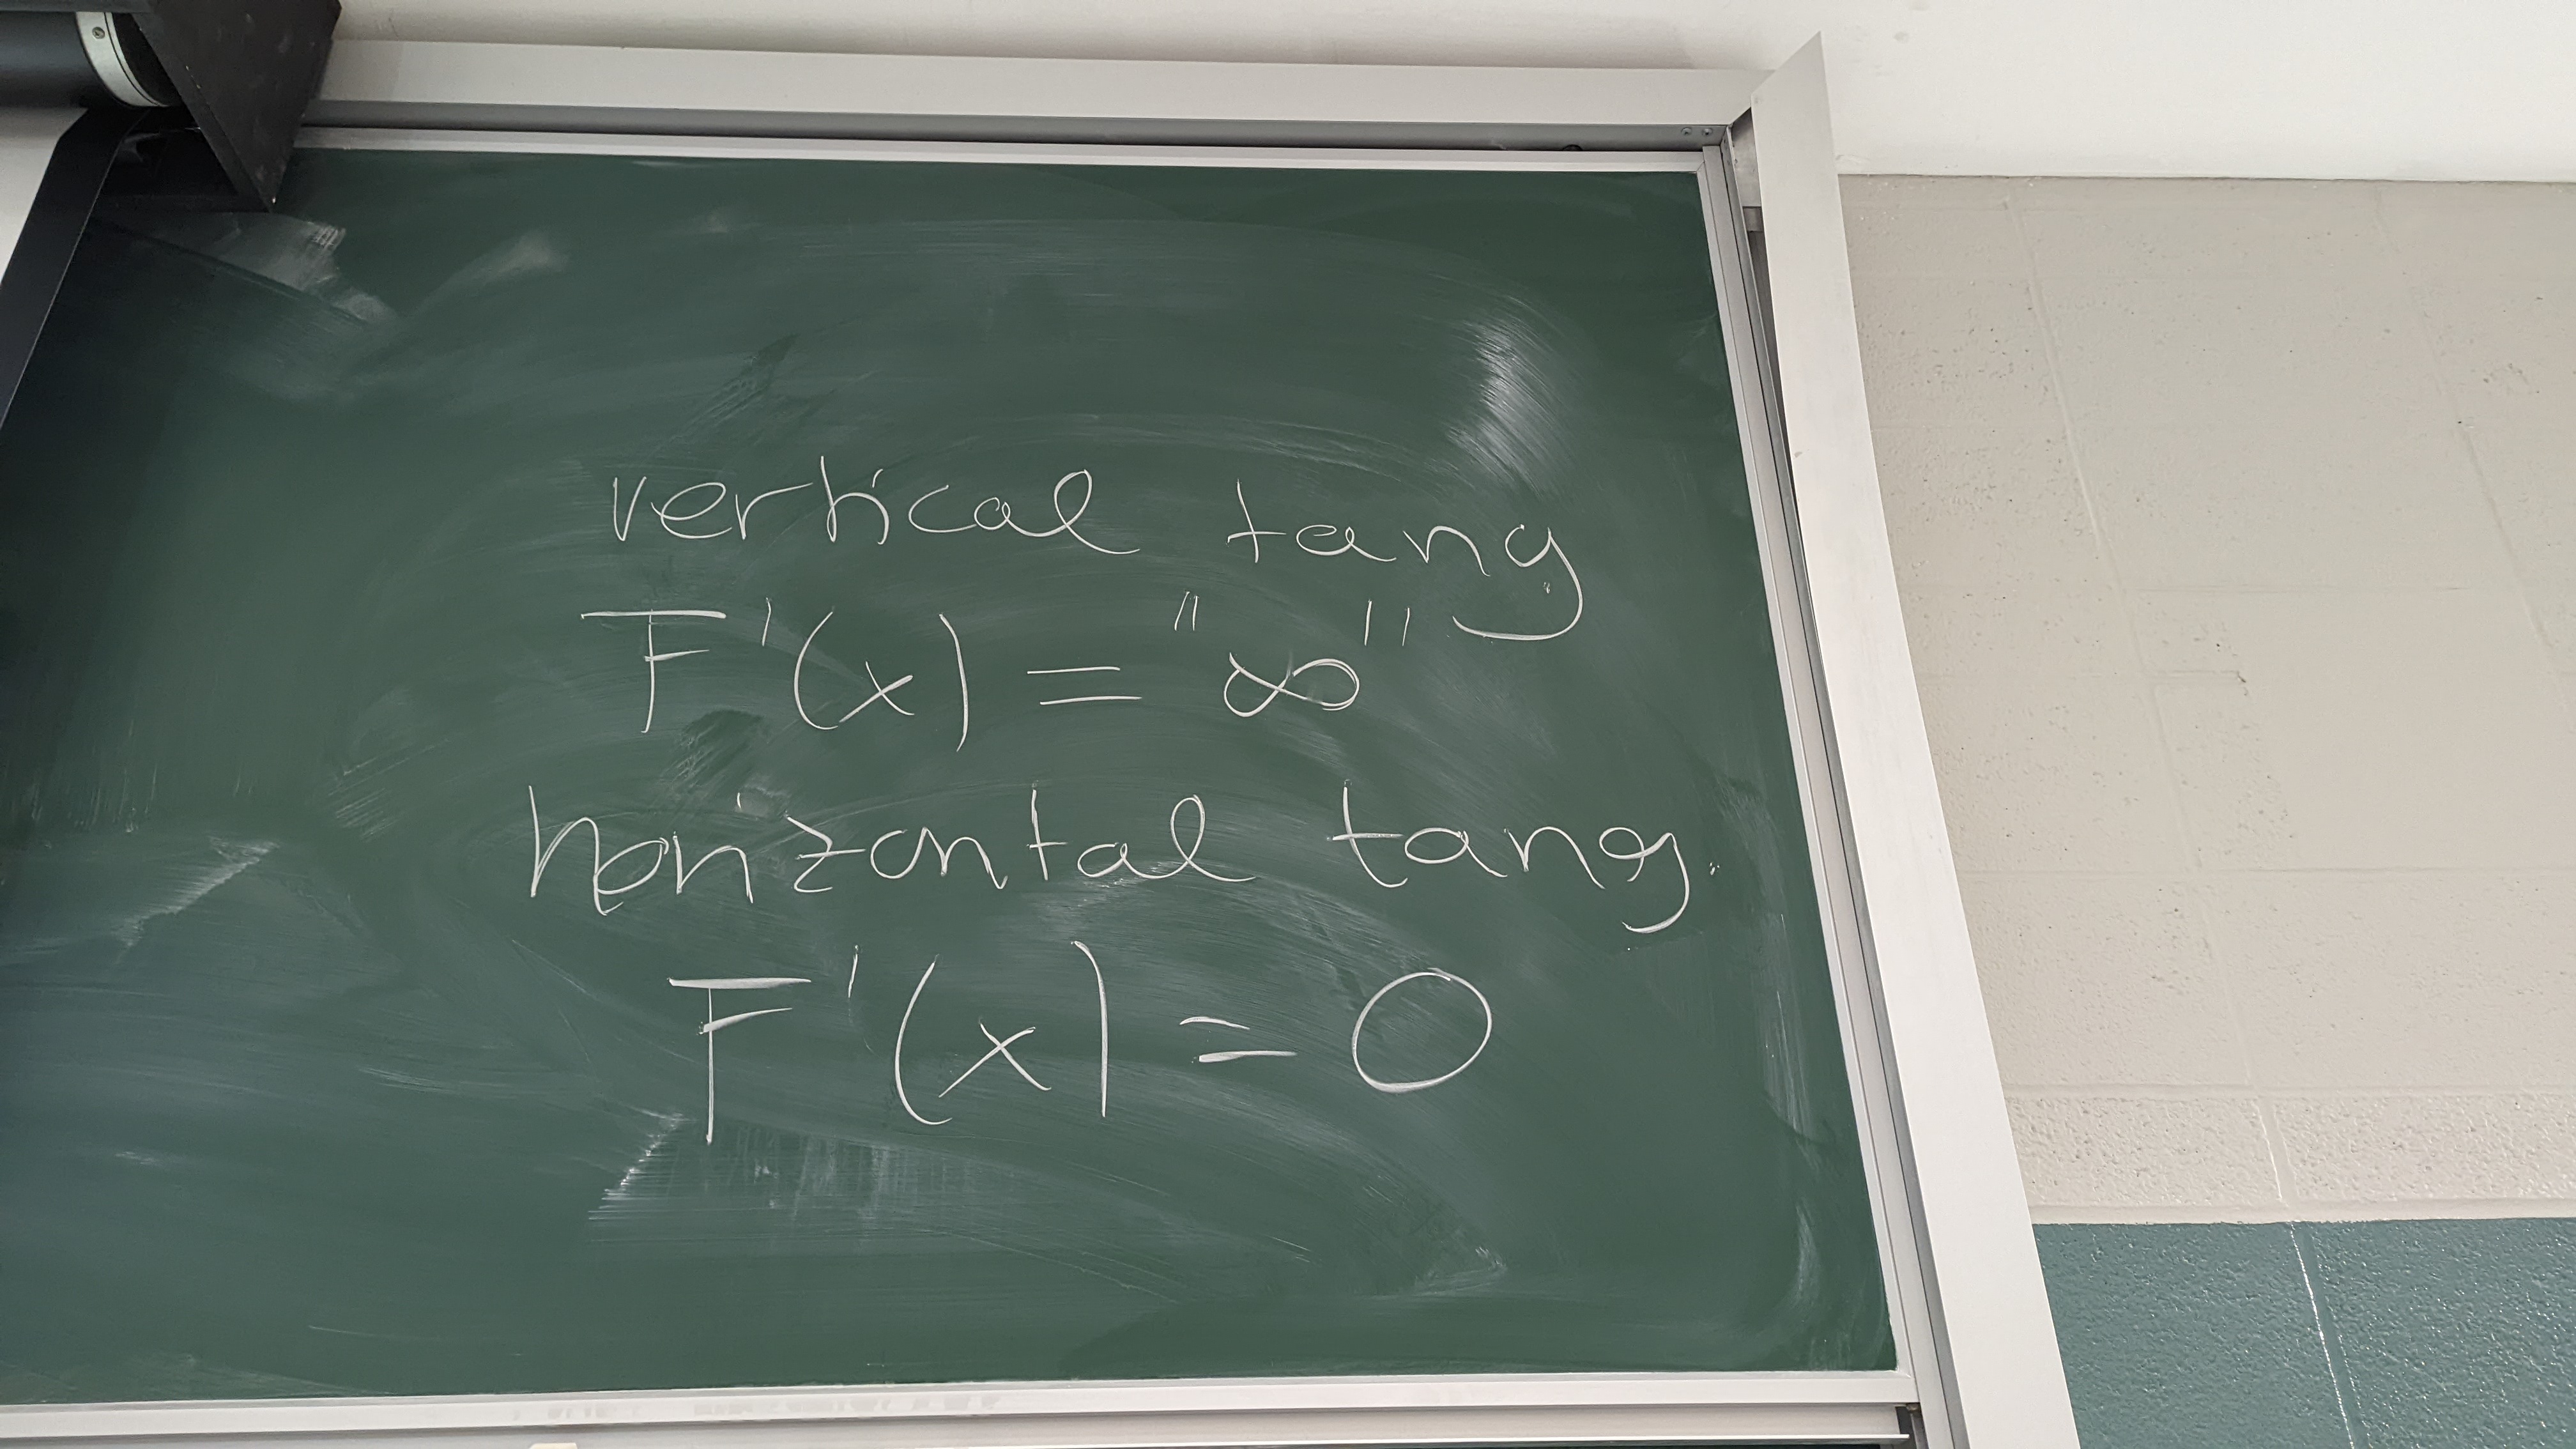 vertical tang
F'(x) = "∞"
horizontal tang.
F'(x) = 0